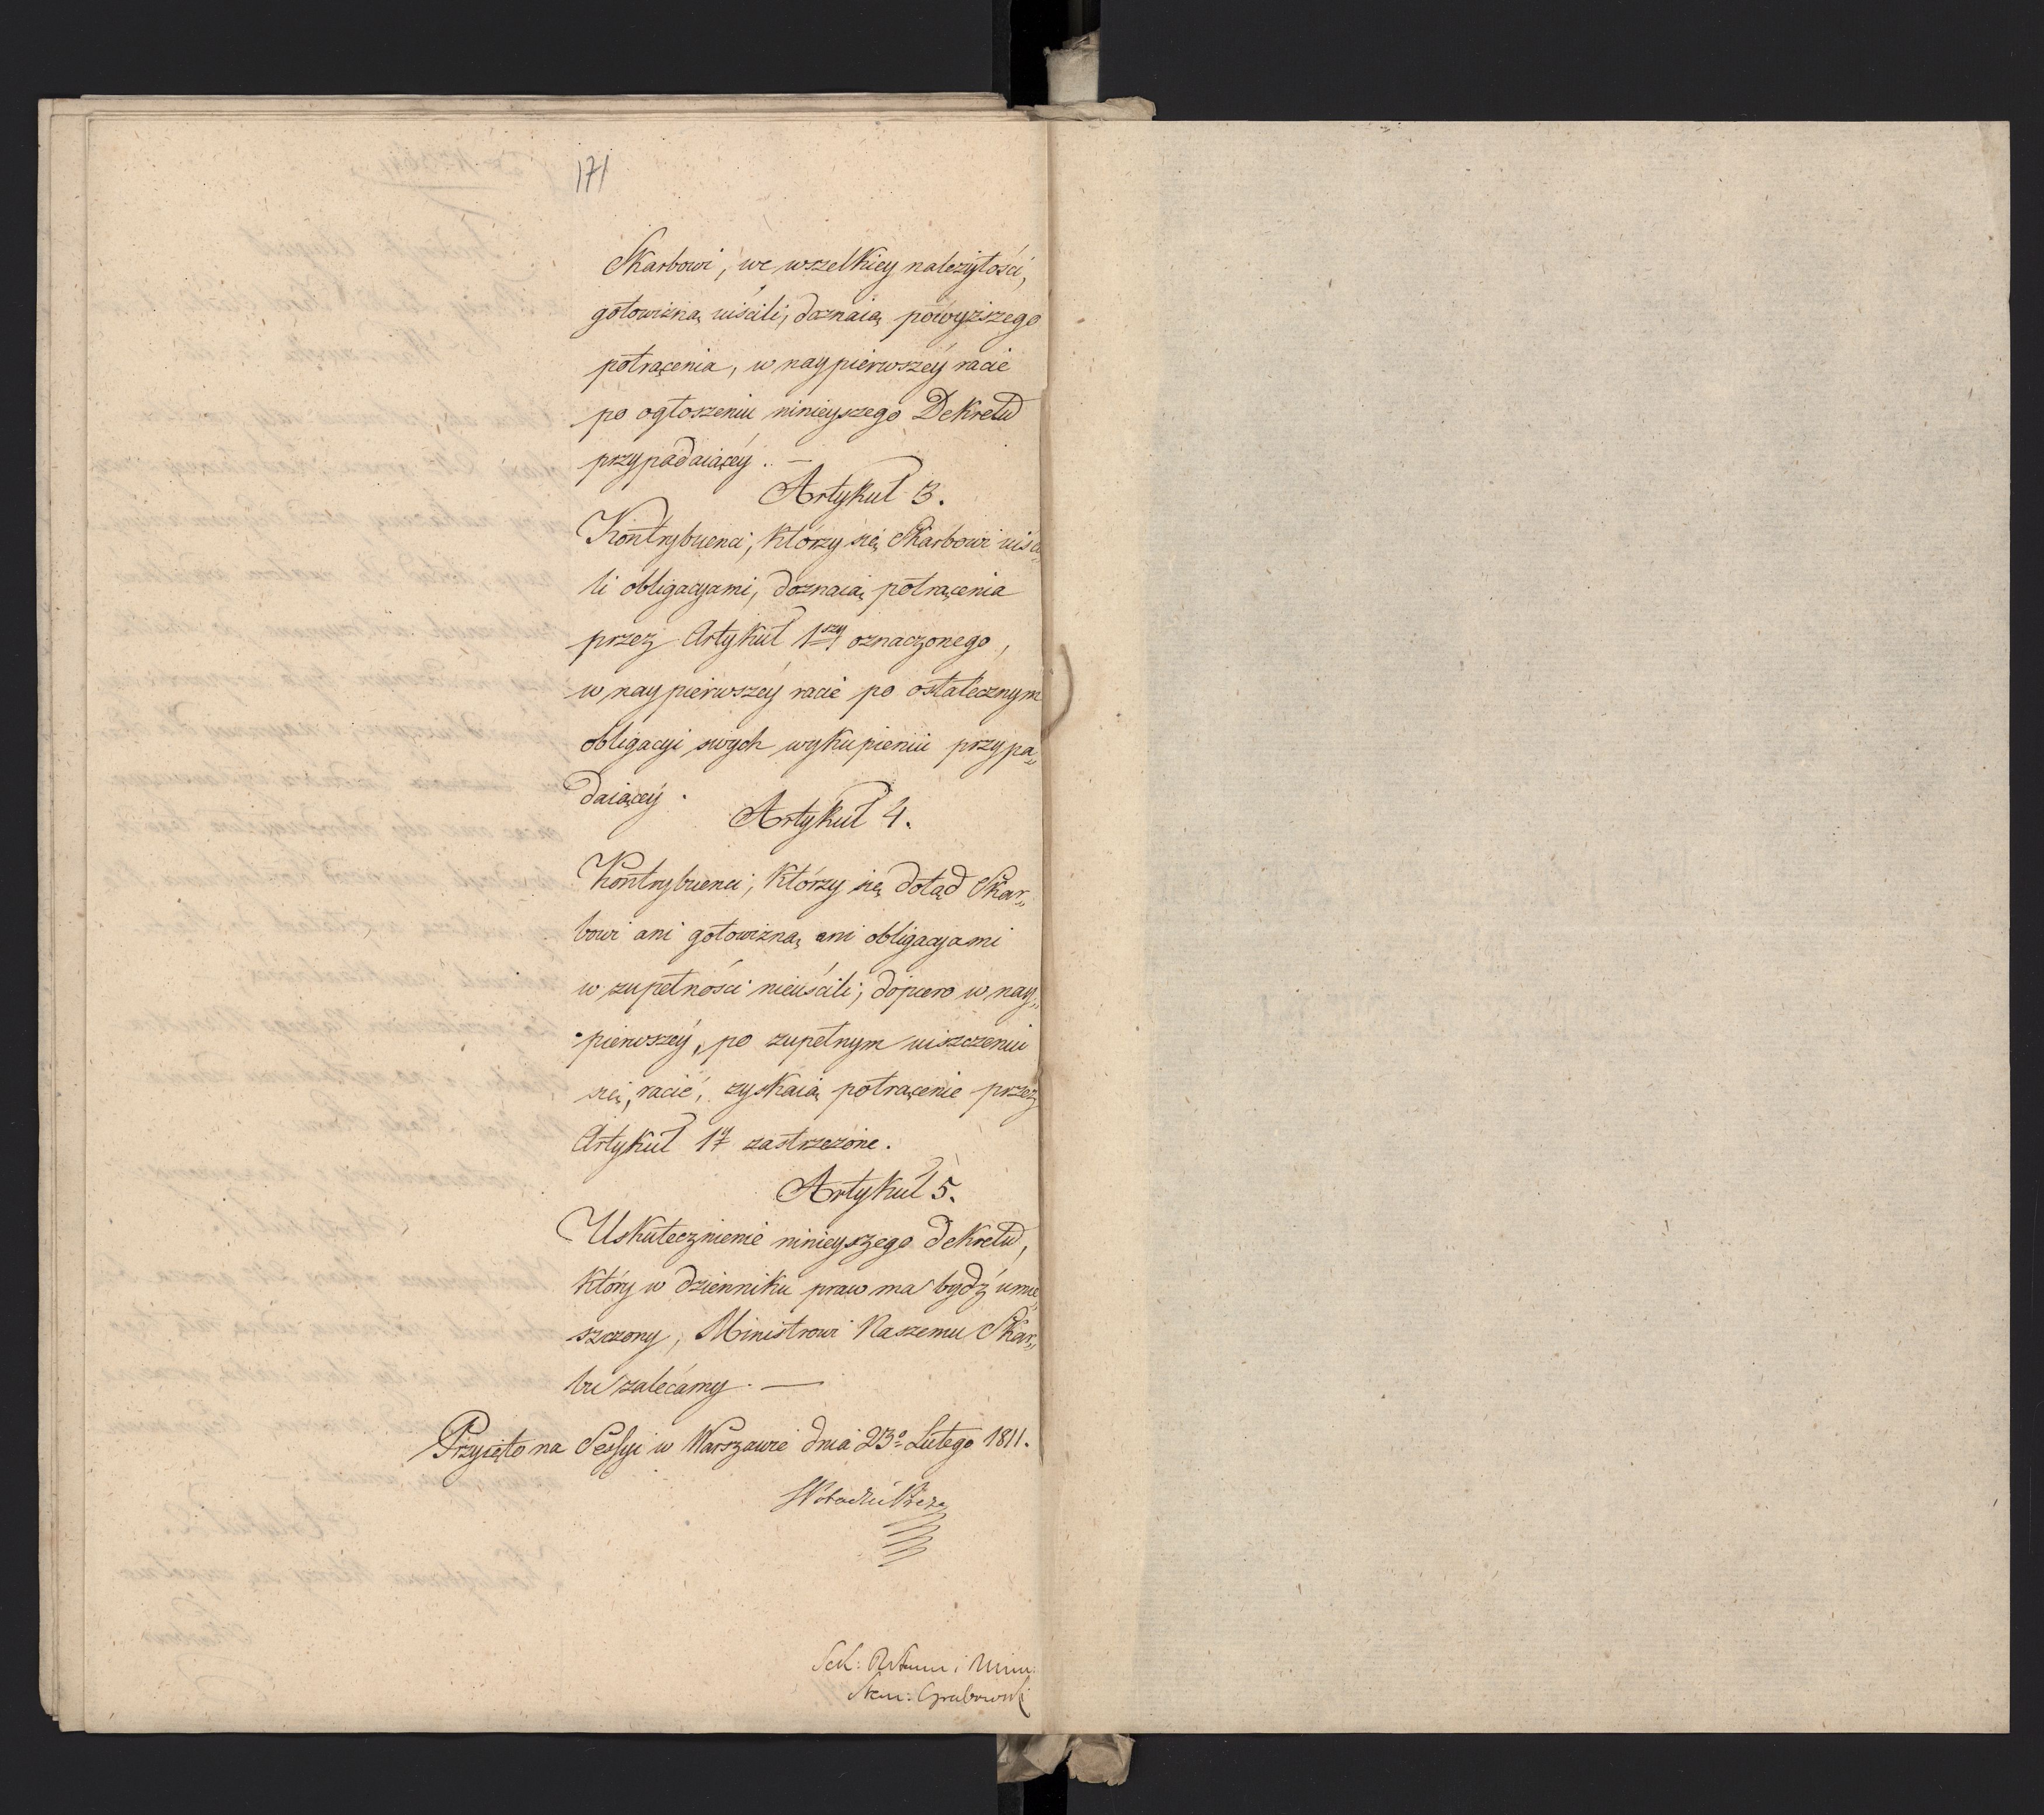 171
Skarbowi, we wszelkiey należytości,
gotowizną uiścili, doznaią powyższego
potrącenia, w naypierwszéy racie
po ogłoszeniu ninieyszego Dekretu
przypadaiącéy. —
Artykuł 3.
Kontrybuenci, którzy się Skarbowi uiści„
li obligacyami, doznaią potrącenia
przez Artykuł 1szy oznaczonego,
w naypierwszéy racie po ostatecznym
obligacyi swych wykupieniu przypa„
daiącéy.
Artykuł 4.
Kontrybuenci, którzy się dotąd Skar„
bowi ani gotowizną ani obligacyami
w zupełności nieuiścili, dopiero w nay„
pierwszéy, po zupełnym uiszczeniu
się, racie, zyskaią potrącenie przez
Artykuł 1y zastrzeżone.
Artykuł 5.
Uskutecznienie ninieyszego dekretu,
który w dzienniku praw ma bydź umie„
szczony, Ministrowi Naszemu Skar„
bu zalecamy. —
Przyięto na Sessyi w Warszawie dnia 23o Lutego 1811.
Sek:
Grabowski